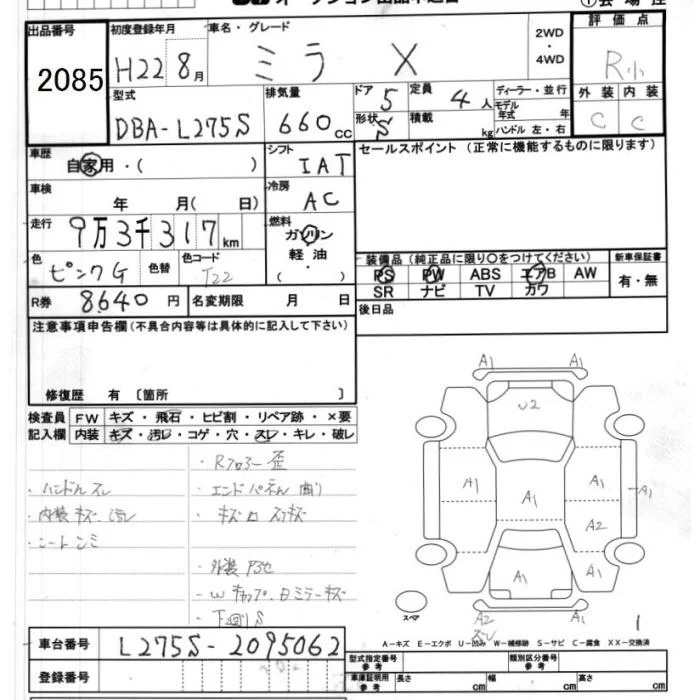 出品番号 2085
初度登録年月 H22 8月
車名・グレード ミラ X
2WD・4WD
評価点 R小
型式 DBA-L275S
排気量 660cc
ドア 5
形状 S
定員 4人
積載 kg
ディーラー・並行
モデル年式 年
ハンドル 左・右
外装 C
内装 C
車歴 自家用・( )
シフト IAT
セールスポイント (正常に機能するものに限ります)
車検 年 月( 日)
冷房 AC
走行 9万3千317km
燃料 ガソリン 軽油・( )
色 ピンクG
色替
色コード T22
装備品 (純正品に限り○をつけてください)
新車保証書 有・無
PS PW ABS エアB AW
SR ナビ TV カワ
R券 8640円
名変期限 月 日
後日品
注意事項申告欄(不具合内容等は具体的に記入して下さい)
修復歴 有 〔箇所 〕
検査員記入欄
FW キズ・飛石・ヒビ割・リペア跡・×要
内装 キズ・汚レ・コゲ・穴・スレ・キレ・破レ
・Rフロアー 歪
・ハンドルスレ
・エンドパネル 曲り
・内装キズ 汚レ
・シートシミ
・下廻りS
A1 A1
U2
A1 A1 A1 A1
A2
A1 A1
A2 A1
スレ
スペア
1
A-キズ E-エクボ U-凹み W-補修跡 S-サビ C-腐食 XX-交換済
車台番号 L275S-2095062
登録番号
型式指定番号 参考
類別区分番号 参考
車庫証明用 参考 長さ cm 幅 cm 高さ cm